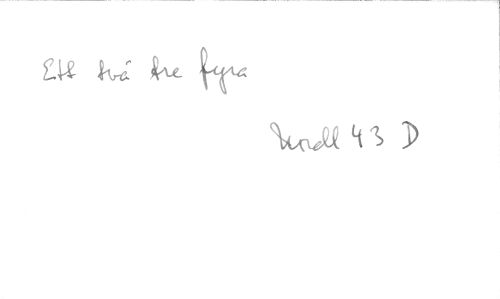 Ett två tre fyra
43 D